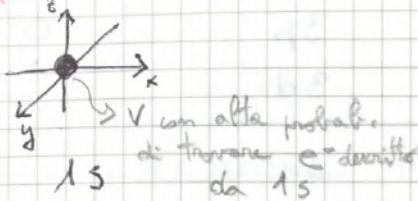 z
x
y
V con alta probab.
di trovare e⁻ descritto
da 1s
1s